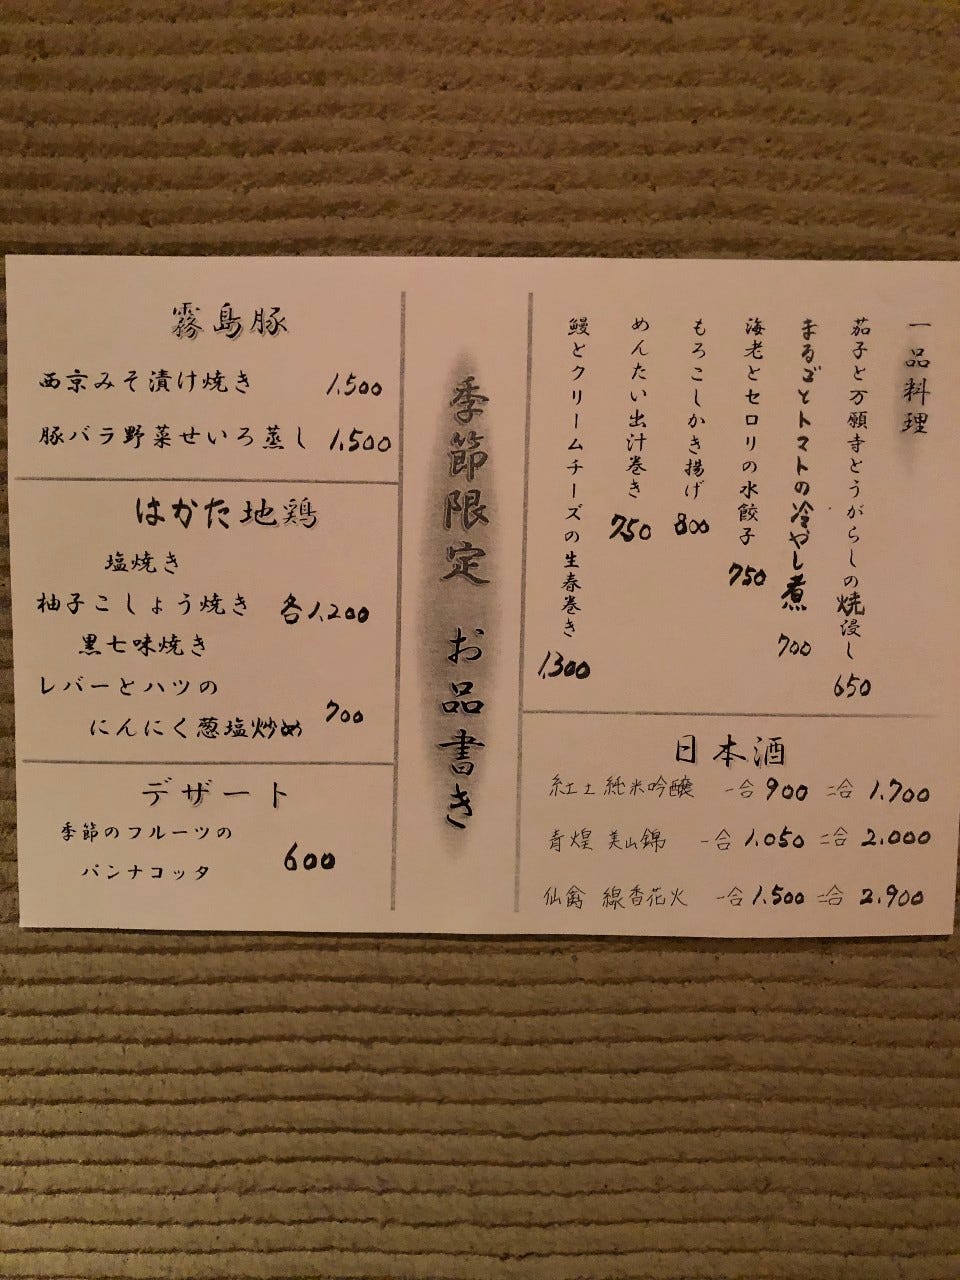 一品料理
茄子と万願寺とうがらしの焼浸し 650
まるごとトマトの冷やし煮 700
海老とセロリの水餃子 750
もろこしかき揚げ 800
めんたい出汁巻き 750
鰻とクリームチーズの生春巻き 1,300
日本酒
紅土 純米吟醸 一合 900 二合 1,700
青煌 美山錦 一合 1,050 二合 2,000
仙禽 線香花火 一合 1,500 二合 2,900
季節限定 お品書き
霧島豚
西京みそ漬け焼き 1,500
豚バラ野菜せいろ蒸し 1,500
はかた地鶏
塩焼き
柚子こしょう焼き 各1,200
黒七味焼き
レバーとハツの
にんにく葱塩炒め 700
デザート
季節のフルーツの
パンナコッタ 600